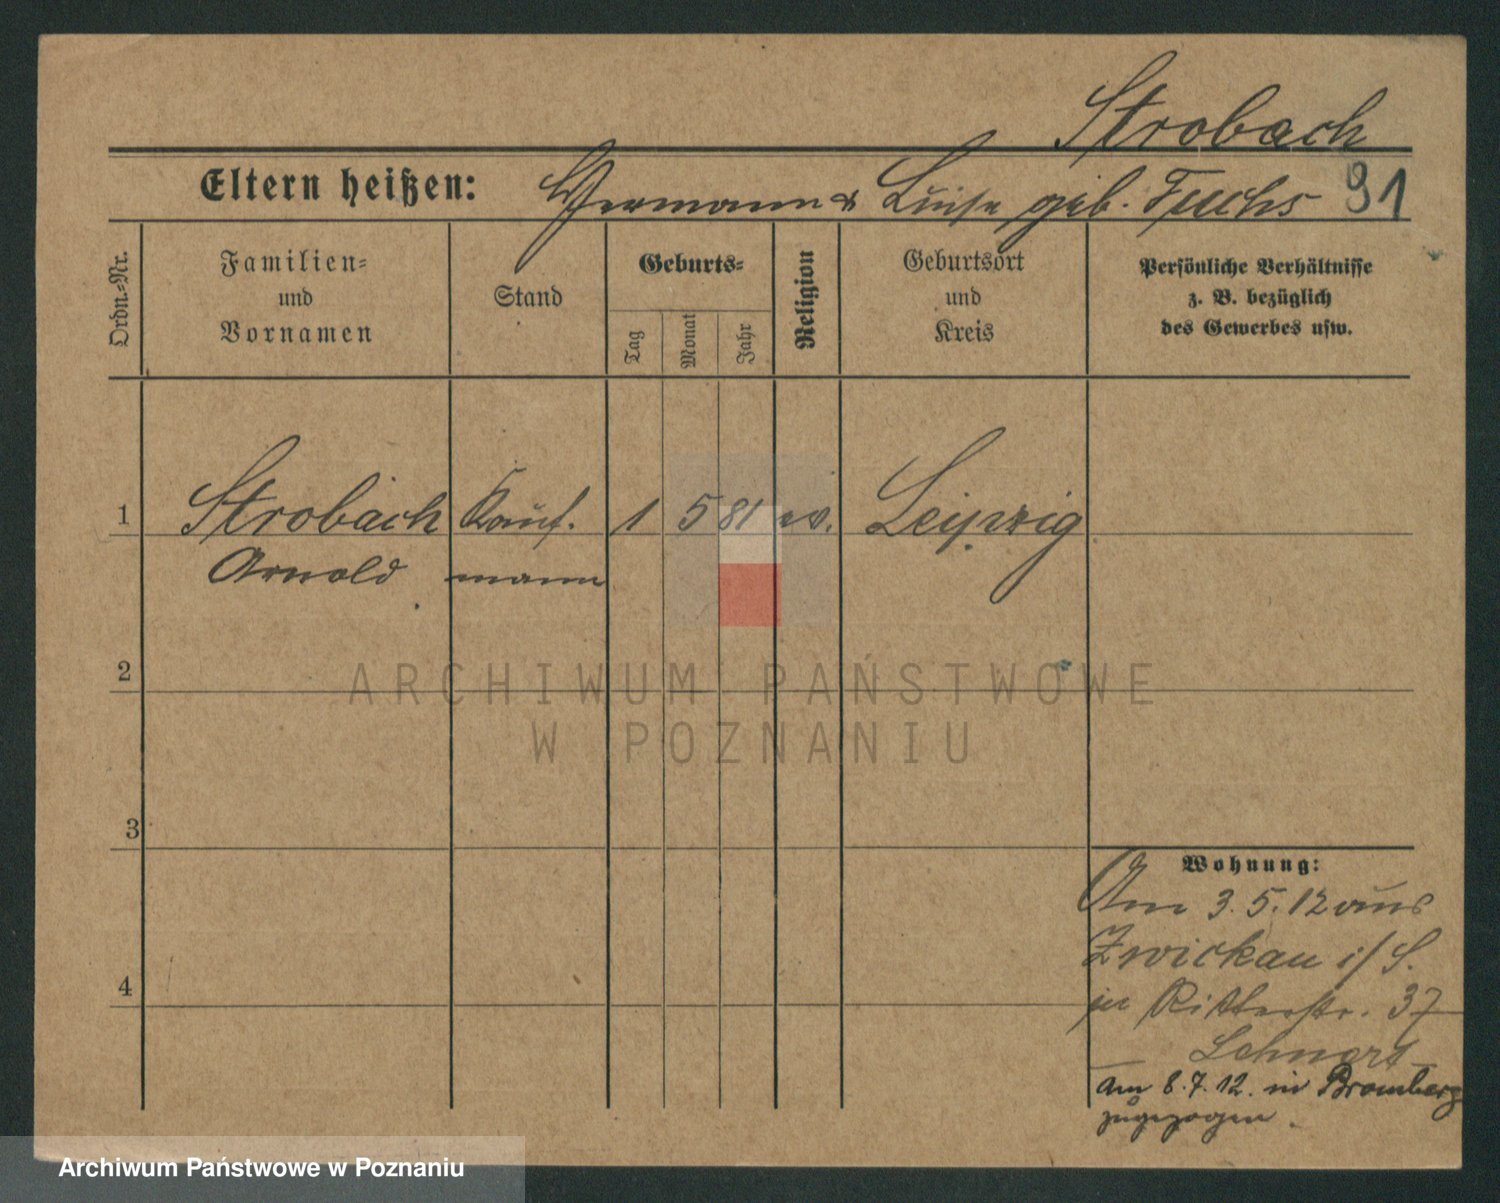 Strobach
Eltern heißen: Hermann & Luise geb. Fuchs 91
Ordn.-Nr.
Familien-
und
Vornamen
Stand
Geburts-
Tag
Monat
Jahr
Religion
Geburtsort
und
Kreis
Persönliche Verhältnisse
z. B. bezüglich
des Gewerbes usw.
1 Strobach Kauf- 1 5 81 ev. Leipzig
Arnold mann
2
ARCHIWUM PAŃSTWOWE
W POZNANIU
3
Wohnung:
Am 3.5.12 aus
Zwickau i/S.
4
Ritterstr. 37
am 8.7.12. in Bromberg
zugezogen.
Archiwum Państwowe w Poznaniu